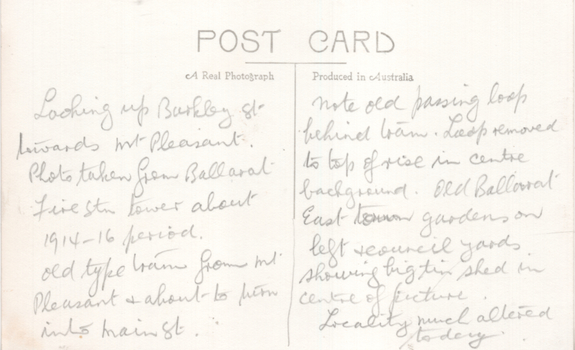 POST CARD
A Real Photograph
Produced in Australia
Looking up Barkley St
towards Mt Pleasant.
Photo taken from Ballarat
Fire Stn Tower about
1914-16 period.
old type tram from Mt
Pleasant & about to turn
into Main St.
Note old passing loop
behind tram. Loop removed
to top of rise in centre
background. Old Ballarat
East town gardens on
left & council yards
showing big tin shed in
centre of picture.
Locality much altered
today.